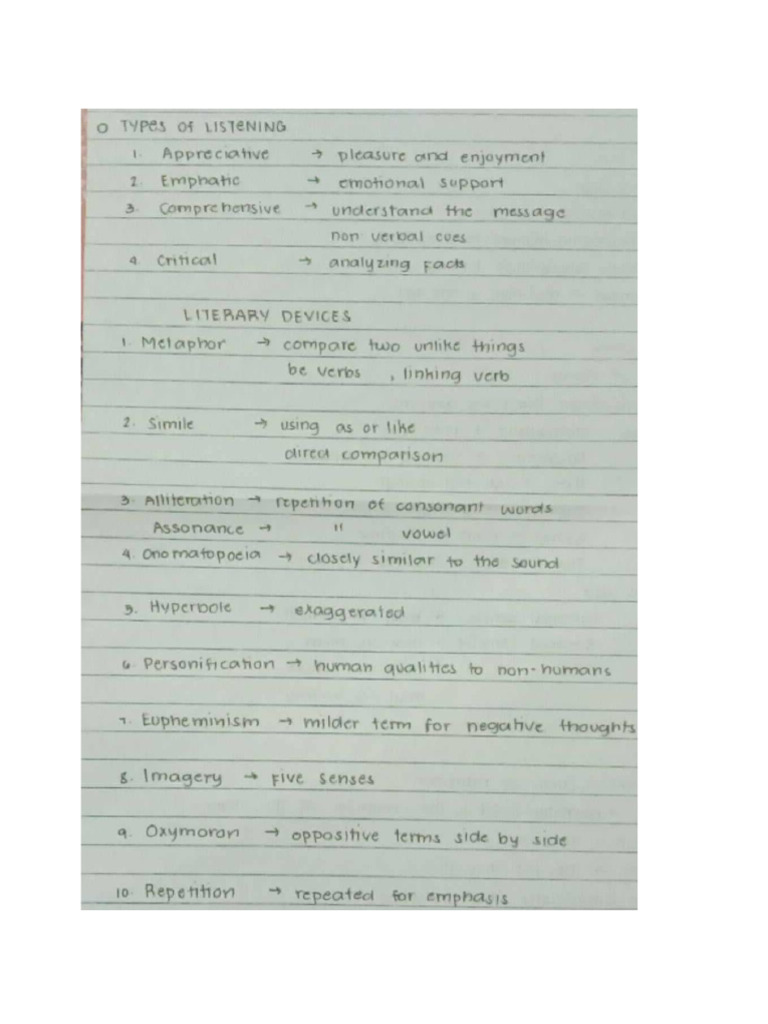 O Types of Listening
1. Appreciative → pleasure and enjoyment
2. Emphatic → emotional support
3. Comprehensive → understand the message
non verbal cues
4. Critical → analyzing facts
LITERARY DEVICES
1. Metaphor → compare two unlike things
be verbs , linking verb
2. Simile → using as or like
direct comparison
3. Alliteration → repetition of consonant words
Assonance → " vowel
4. Onomatopoeia → closely similar to the sound
5. Hyperbole → exaggerated
6. Personification → human qualities to non-humans
7. Eupheminism → milder term for negative thoughts
8. Imagery → five senses
9. Oxymoron → oppositive terms side by side
10. Repetition → repeated for emphasis